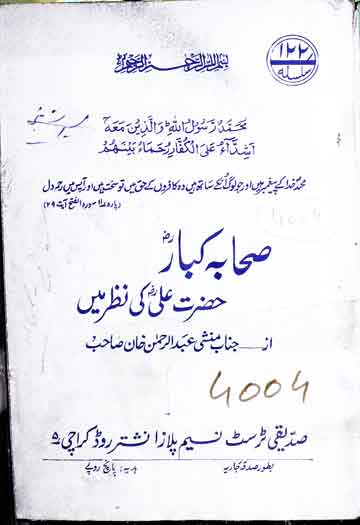 بسم اللہ الرحمن الرحیم
۱۲۲
سلسلہ
محمد رسول اللہ والذین معہ
اشدآء علی الکفار رحماء بینھم
محمدؐ خدا کے پیغمبر ہیں اور جو لوگ انکے ساتھ ہیں وہ کافروں کے حق میں تو سخت ہیں اور آپس میں رحم دل
(پارہ ۲۶ سورہ الفتح آیت ۲۹)
4004
صحابہ کبارؓ
حضرت علیؓ کی نظر میں
از ـــــ جناب منشی عبدالرحمٰن خان صاحب
4004
صدیقی ٹرسٹ نسیم پلازا نشتر روڈ کراچی ۵
بطور صدقہ جاریہ
ہدیہ: پانچ روپے